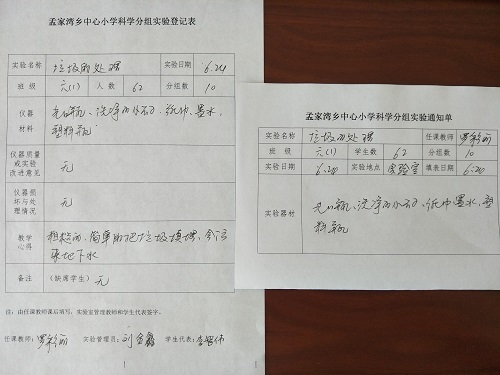 孟家湾乡中心小学科学分组实验登记表
实验名称 垃圾的处理 实验日期 6.20
班 级 六(1) 人 数 62 分组数 10
仪器
材料
广口瓶、洗净的小石子、纸巾、墨水、
塑料瓶
仪器质量
或实验
改进意见
无
仪器损
坏与处
理情况
无
教学
心得
粗糙的、简单的把垃圾填埋、会污
染地下水
备注 (缺席学生) 无
注:由任课教师课后填写,实验室管理教师和学生代表签字。
任课教师: 实验管理员: 学生代表:
孟家湾乡中心小学科学分组实验通知单
实验名称 垃圾的处理 任课教师
班 级 六(1) 学生数 62 分组数 10
实验日期 6.20 实验地点 实验室 填表日期 6.20
实验器材
广口瓶、洗净的小石子、纸巾、墨水、塑
料瓶